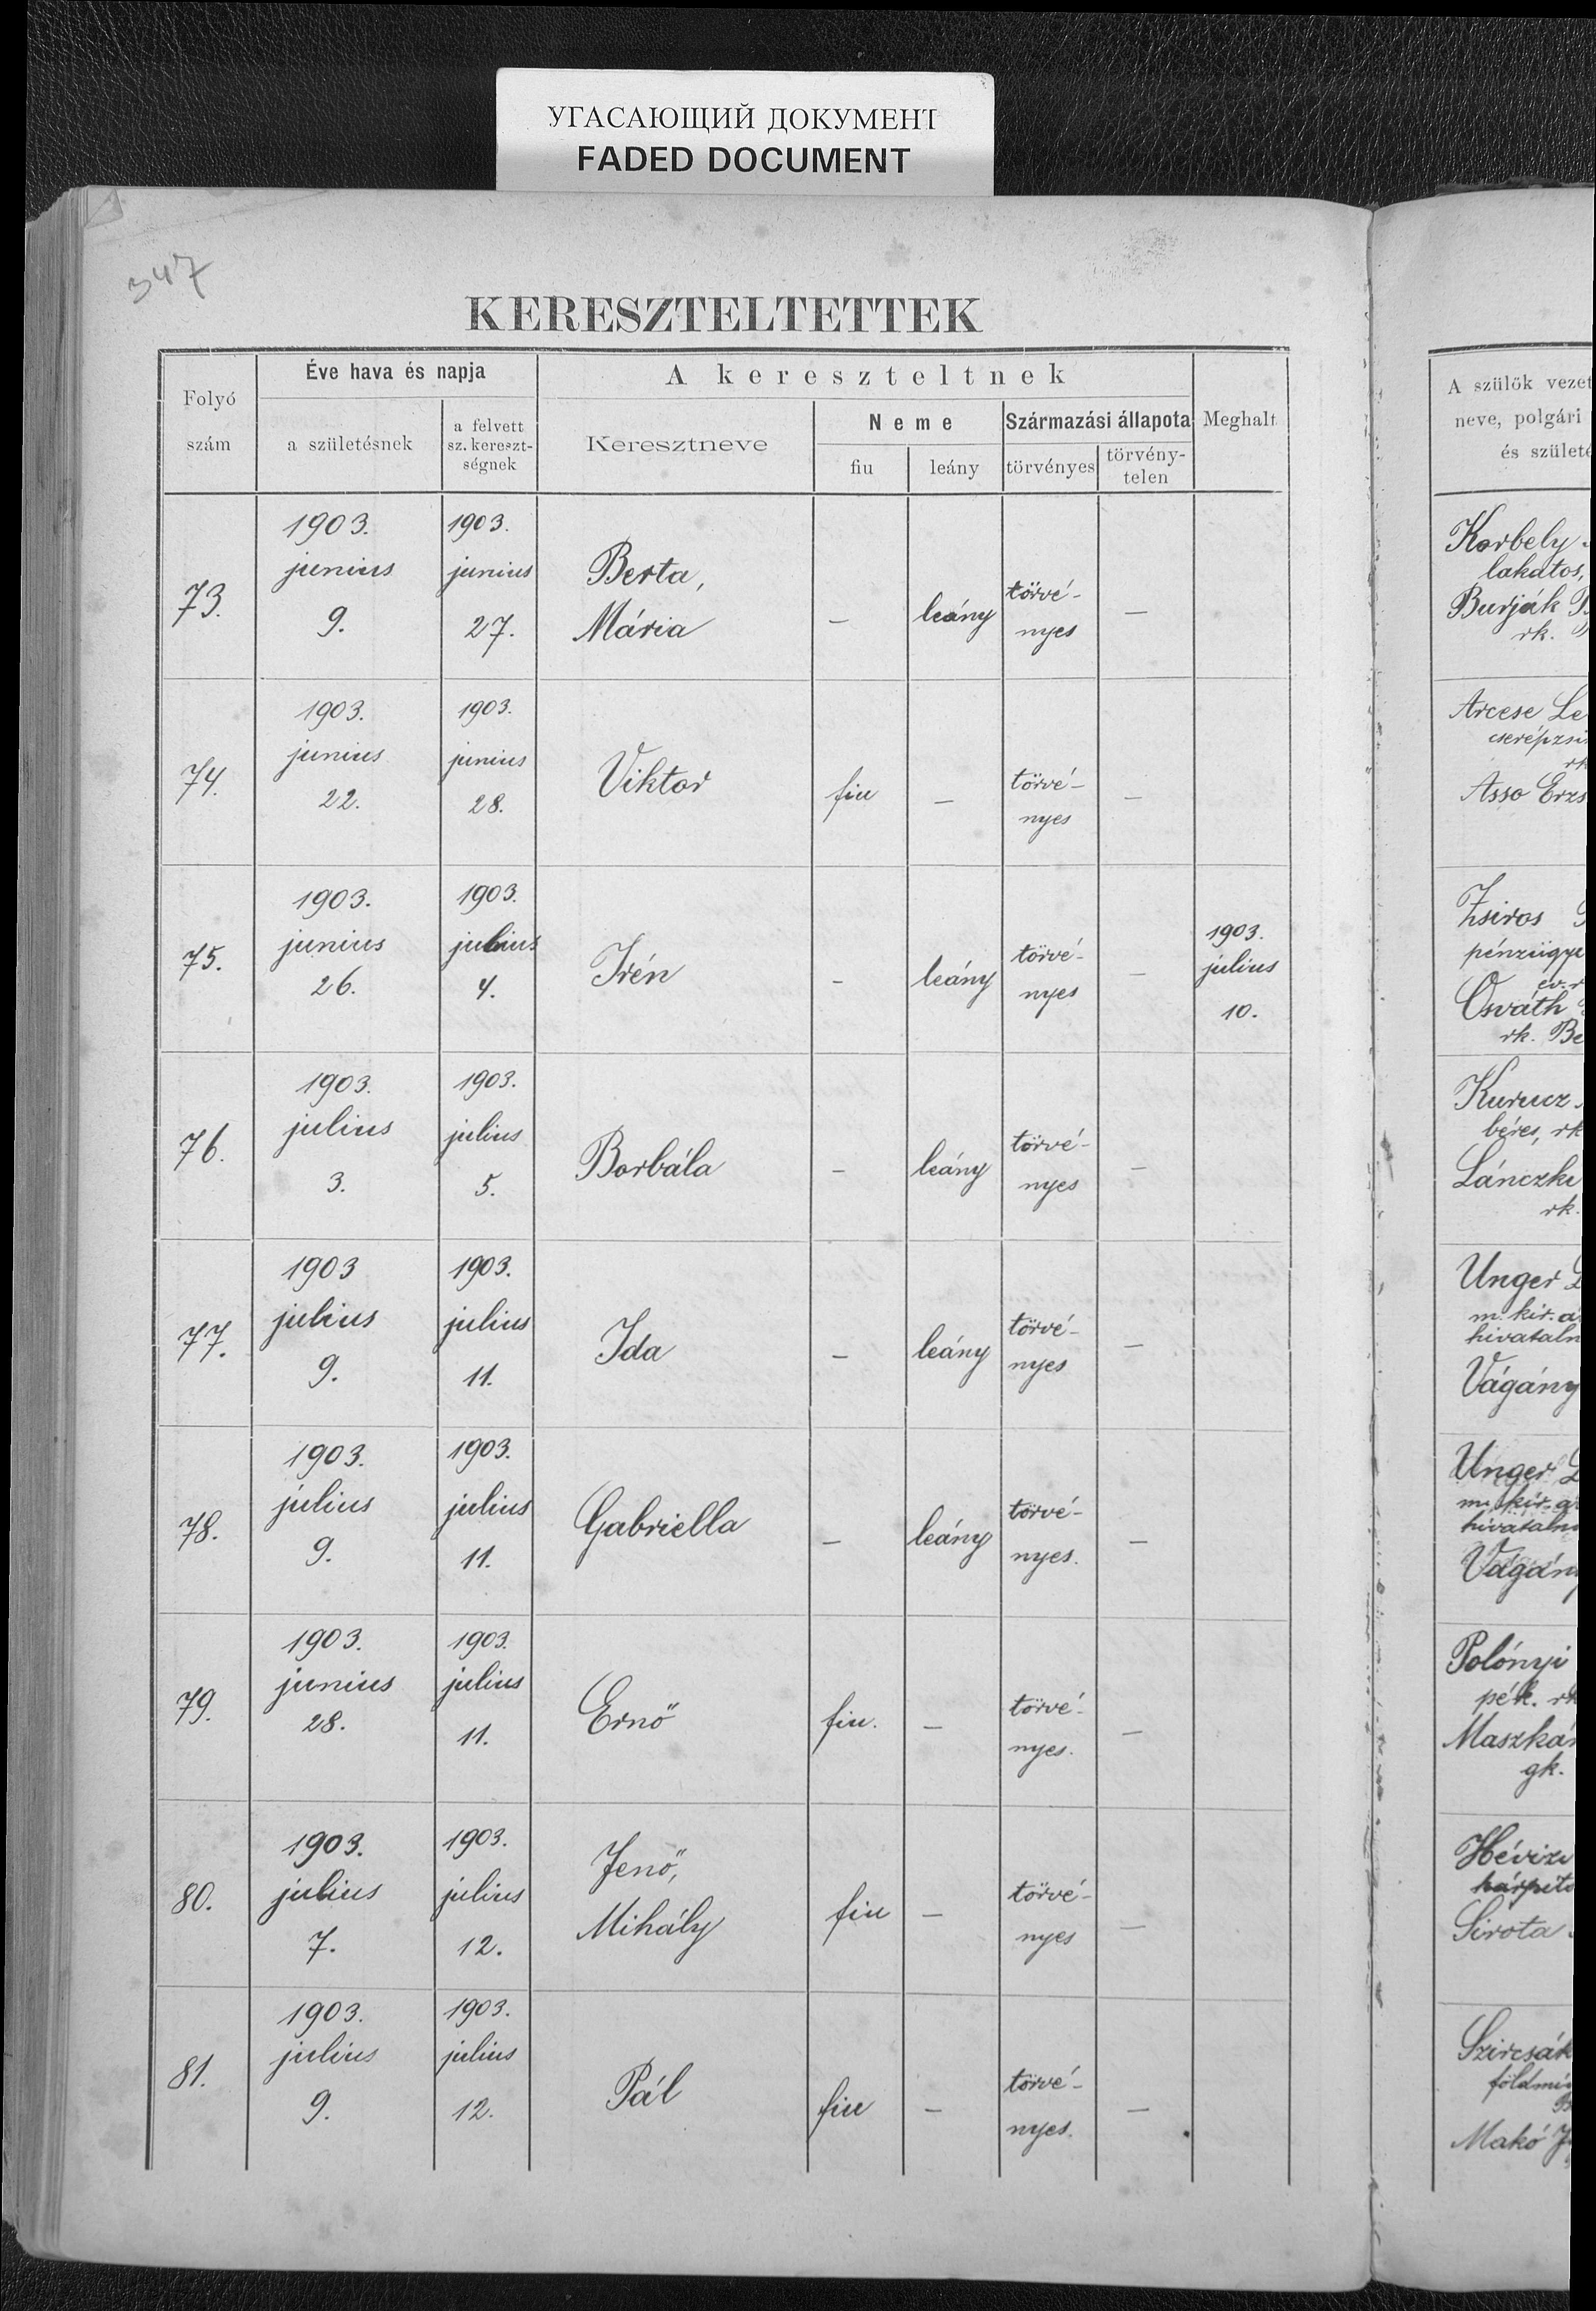 УГАСАЮЩИЙ ДОКУМЕНТ
FADED DOCUMENT
347
KERESZTELTETTEK
Folyó szám
Éve hava és napja
a születésnek
a felvett sz. kereszt-ségnek
A kereszteltnek
Keresztneve
Neme
fiu
leány
Származási állapota
törvényes
törvény-telen
Meghalt
73. 1903. junius 9. 1903. junius 27. Berta, Mária — leány törvé-nyes —
74. 1903. junius 22. 1903. junius 28. Viktor fiu — törvé-nyes —
75. 1903. junius 26. 1903. julius 4. Irén — leány törvé-nyes — 1903. július 10.
76. 1903. julius 3. 1903. julius 5. Borbála — leány törvé-nyes —
77. 1903 julius 9. 1903. julius 11. Ida — leány törvé-nyes —
78. 1903. julius 9. 1903. julius 11. Gabriella — leány törvé-nyes. —
79. 1903. junius 28. 1903. julius 11. Ernő fiu. — törvé-nyes. —
80. 1903. julius 7. 1903. julius 12. Jenő, Mihály fiu — törvé-nyes —
81. 1903. julius 9. 1903. julius 12. Pál fiu — törvé-nyes. —
A szülők vezet
neve, polgári
és születé
Korbely
lakatos,
Burják
rk.
Arcese Le
cserépzsi
rk
Asso Erzs
Zsiros
pénzügyi
ev. r
Osváth
rk. Be
Kurucz
béres, rk
Lánczki
rk.
Unger
m. kir. á
hivataln
Vágány
Unger
m. kir. á
hivataln
Vágány
Polónyi
pék. rk
Maszkár
gk.
Hévizi
kárpito
Sirota
Szircsák
földmű
Makó